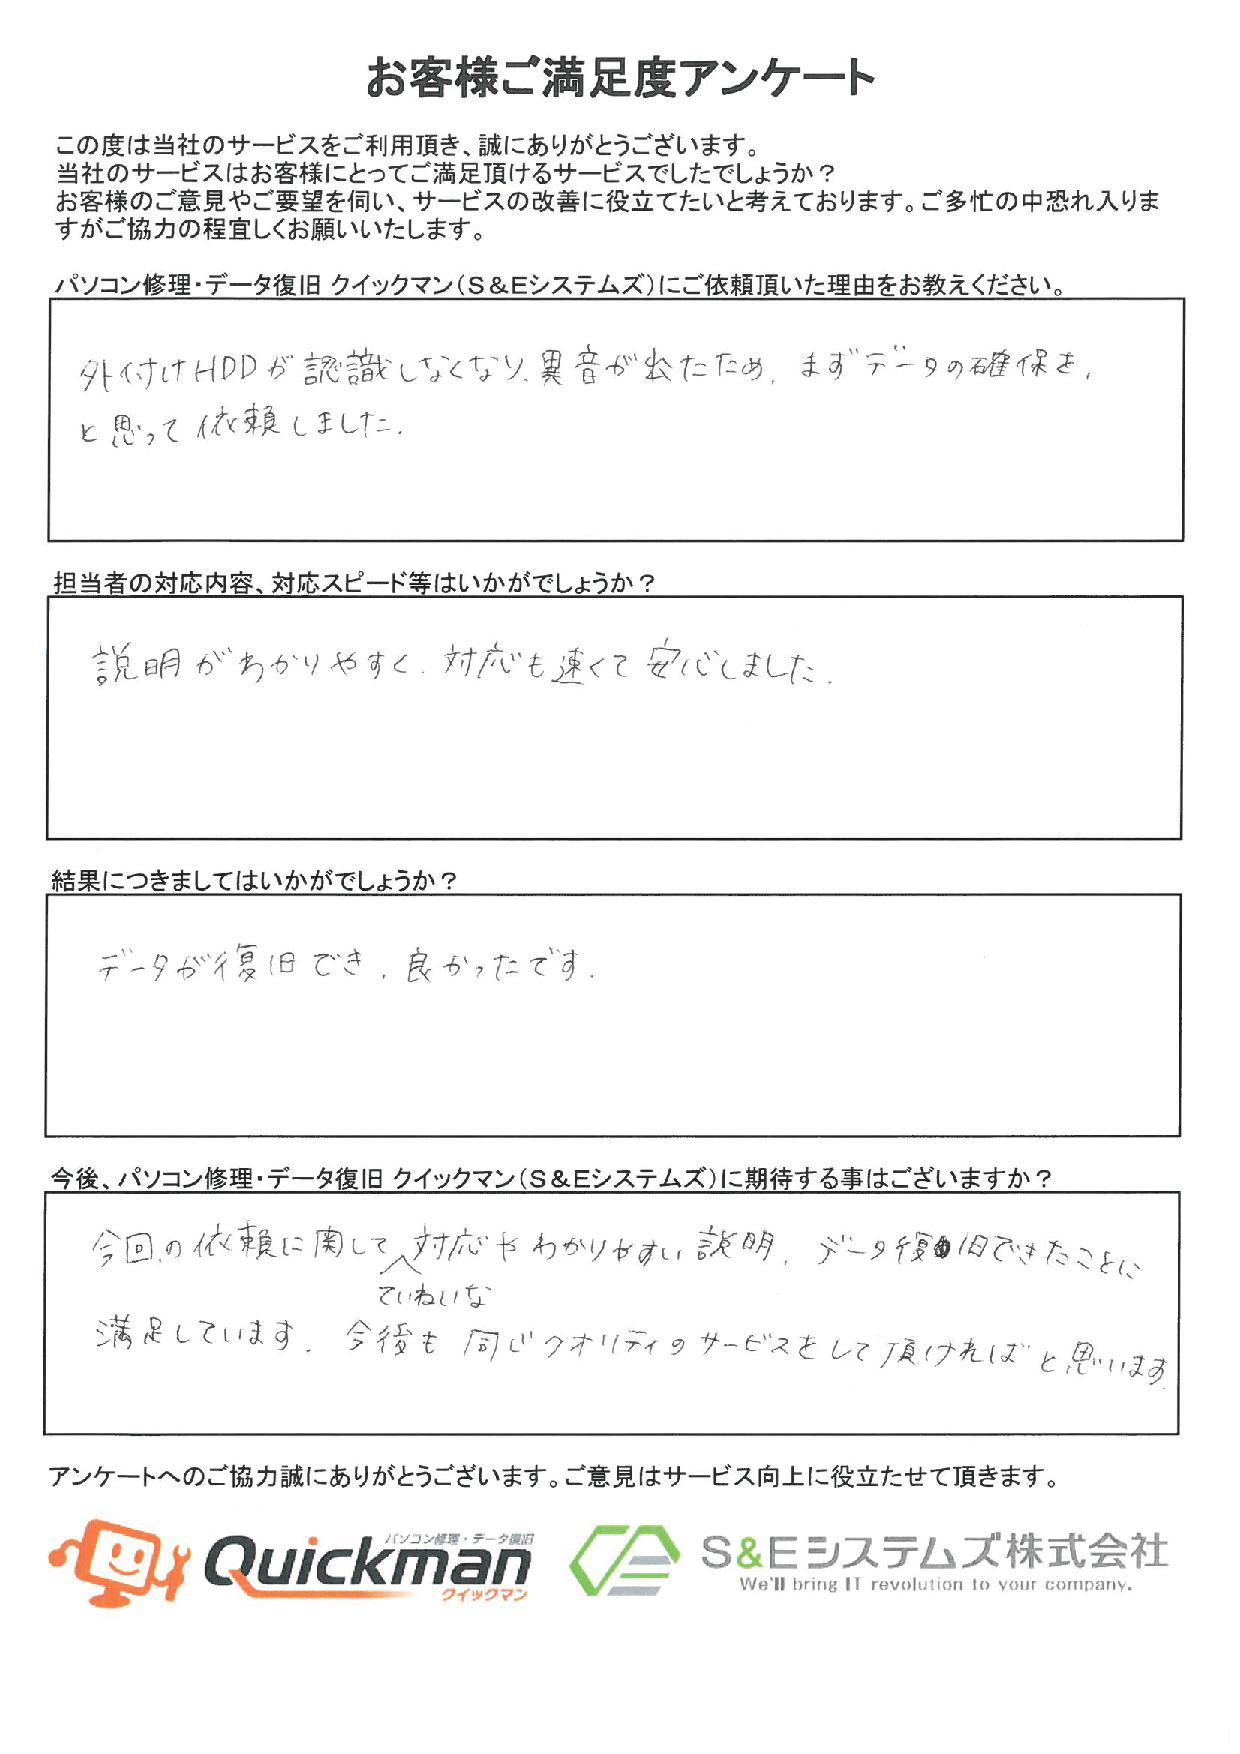 お客様ご満足度アンケート
この度は当社のサービスをご利用頂き、誠にありがとうございます。
当社のサービスはお客様にとってご満足頂けるサービスでしたでしょうか？
お客様のご意見やご要望を伺い、サービスの改善に役立てたいと考えております。ご多忙の中恐れ入りま
すがご協力の程宜しくお願いいたします。
パソコン修理・データ復旧 クイックマン（S＆Eシステムズ）にご依頼頂いた理由をお教えください。
外付けHDDが認識しなくなり、異音が出たため、まずデータの確保を、
と思って依頼しました.
担当者の対応内容、対応スピード等はいかがでしょうか？
説明がわかりやすく、対応も速くて安心しました.
結果につきましてはいかがでしょうか？
データが復旧でき、良かったです.
今後、パソコン修理・データ復旧 クイックマン（S＆Eシステムズ）に期待する事はございますか？
今回の依頼に関して対応やわかりやすい説明、データ復旧できたことに
ていねいな
満足しています. 今後も同じクオリティのサービスをして頂ければと思います.
アンケートへのご協力誠にありがとうございます。ご意見はサービス向上に役立たせて頂きます。
パソコン修理・データ復旧
Quickman
クイックマン
S&Eシステムズ株式会社
We'll bring IT revolution to your company.